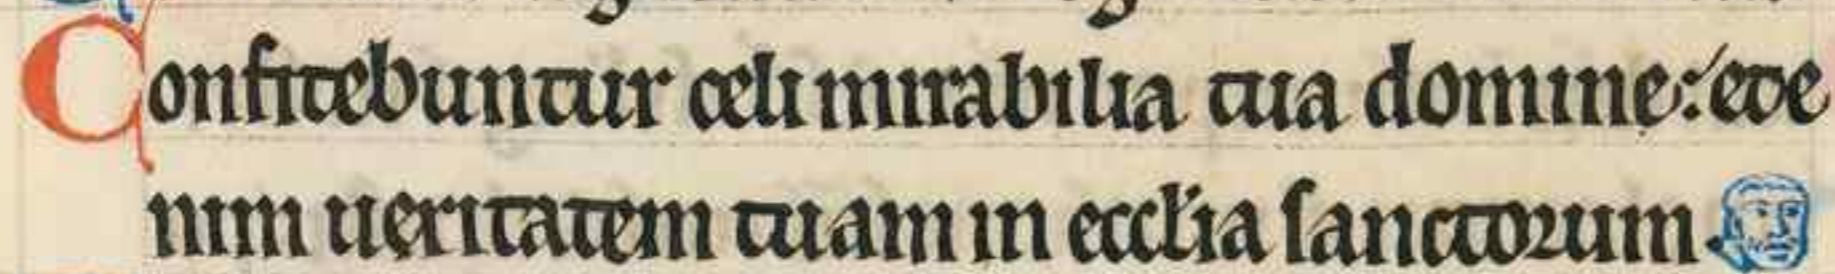 Confitebuntur celi mirabilia tua domine: ete
nim ueritatem tuam in ecclia sanctorum.